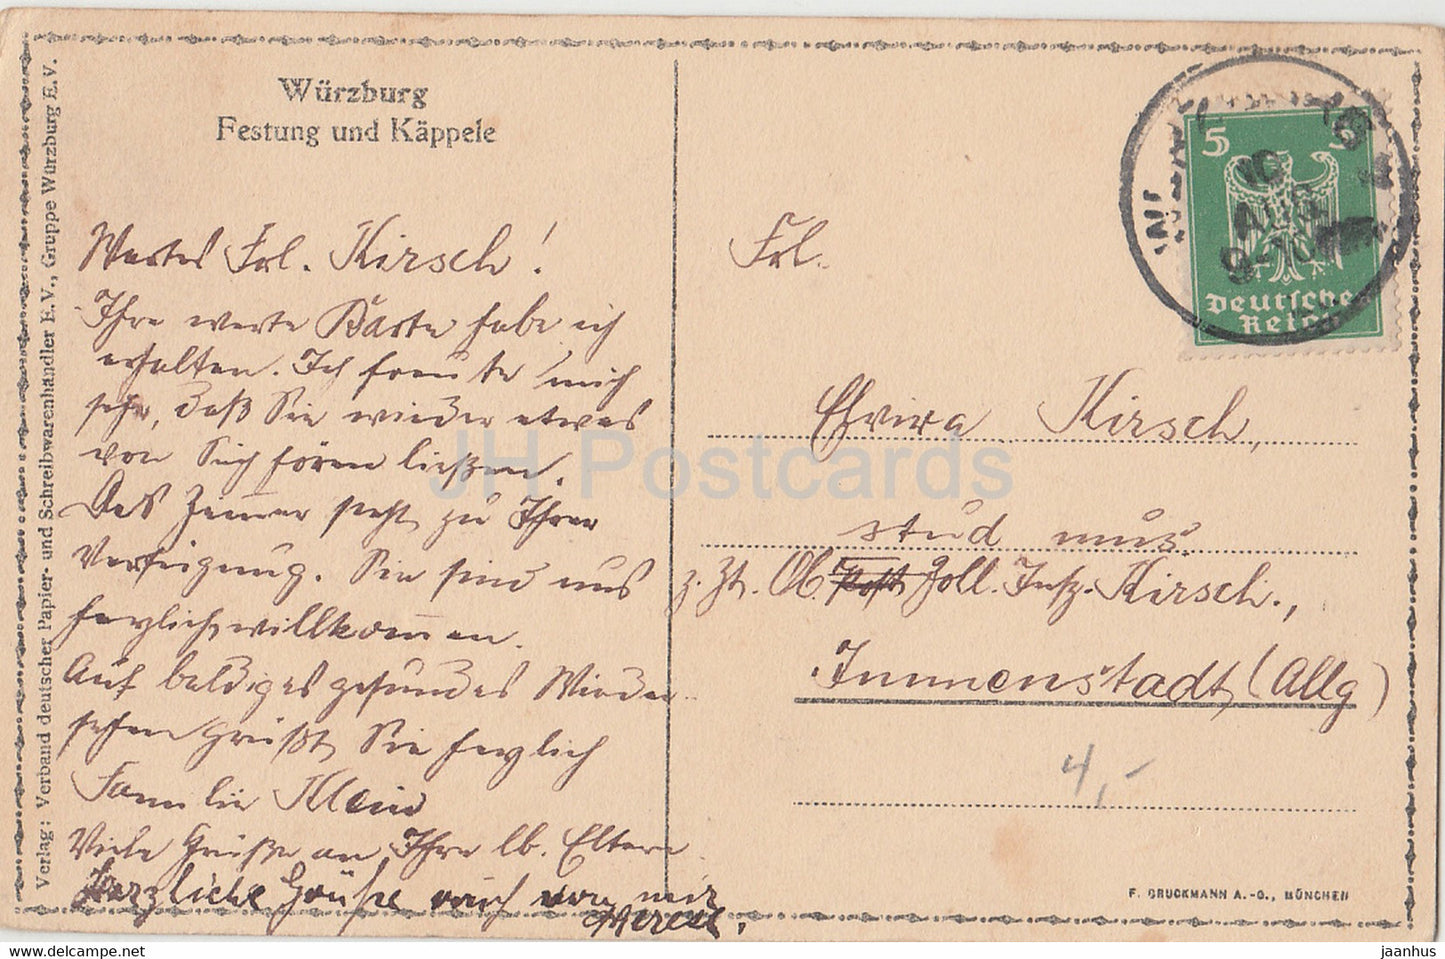 Würzburg
Festung und Käppele
Wertes Frl. Kirsch!
Ihre werte Karte habe ich
erhalten. Ich freute mich
sehr, daß Sie wieder etwas
von Sich hören ließen.
Das Zimmer steht zu Ihrer
Verfügung. Sie sind uns
herzlich willkommen.
Auf baldiges gesundes Wieder-
sehen grüßt Sie herzlich
Familie Klein
Viele Grüße an Ihre lb. Eltern.
Herzliche Grüße auch von mir
Frl.
Elvira Kirsch,
stud mus.
z. Zt. Ob. Post Zoll. Insp. Kirsch,
Immenstadt (Allg)
4,-
5 5
10
AUG
9-10
Deutsches
Reich
Verlag: Verband deutscher Papier- und Schreibwarenhändler E.V., Gruppe Würzburg E.V.
F. BRUCKMANN A.-G., MÜNCHEN
JH Postcards
www.jhpostcards.com
jaanhus